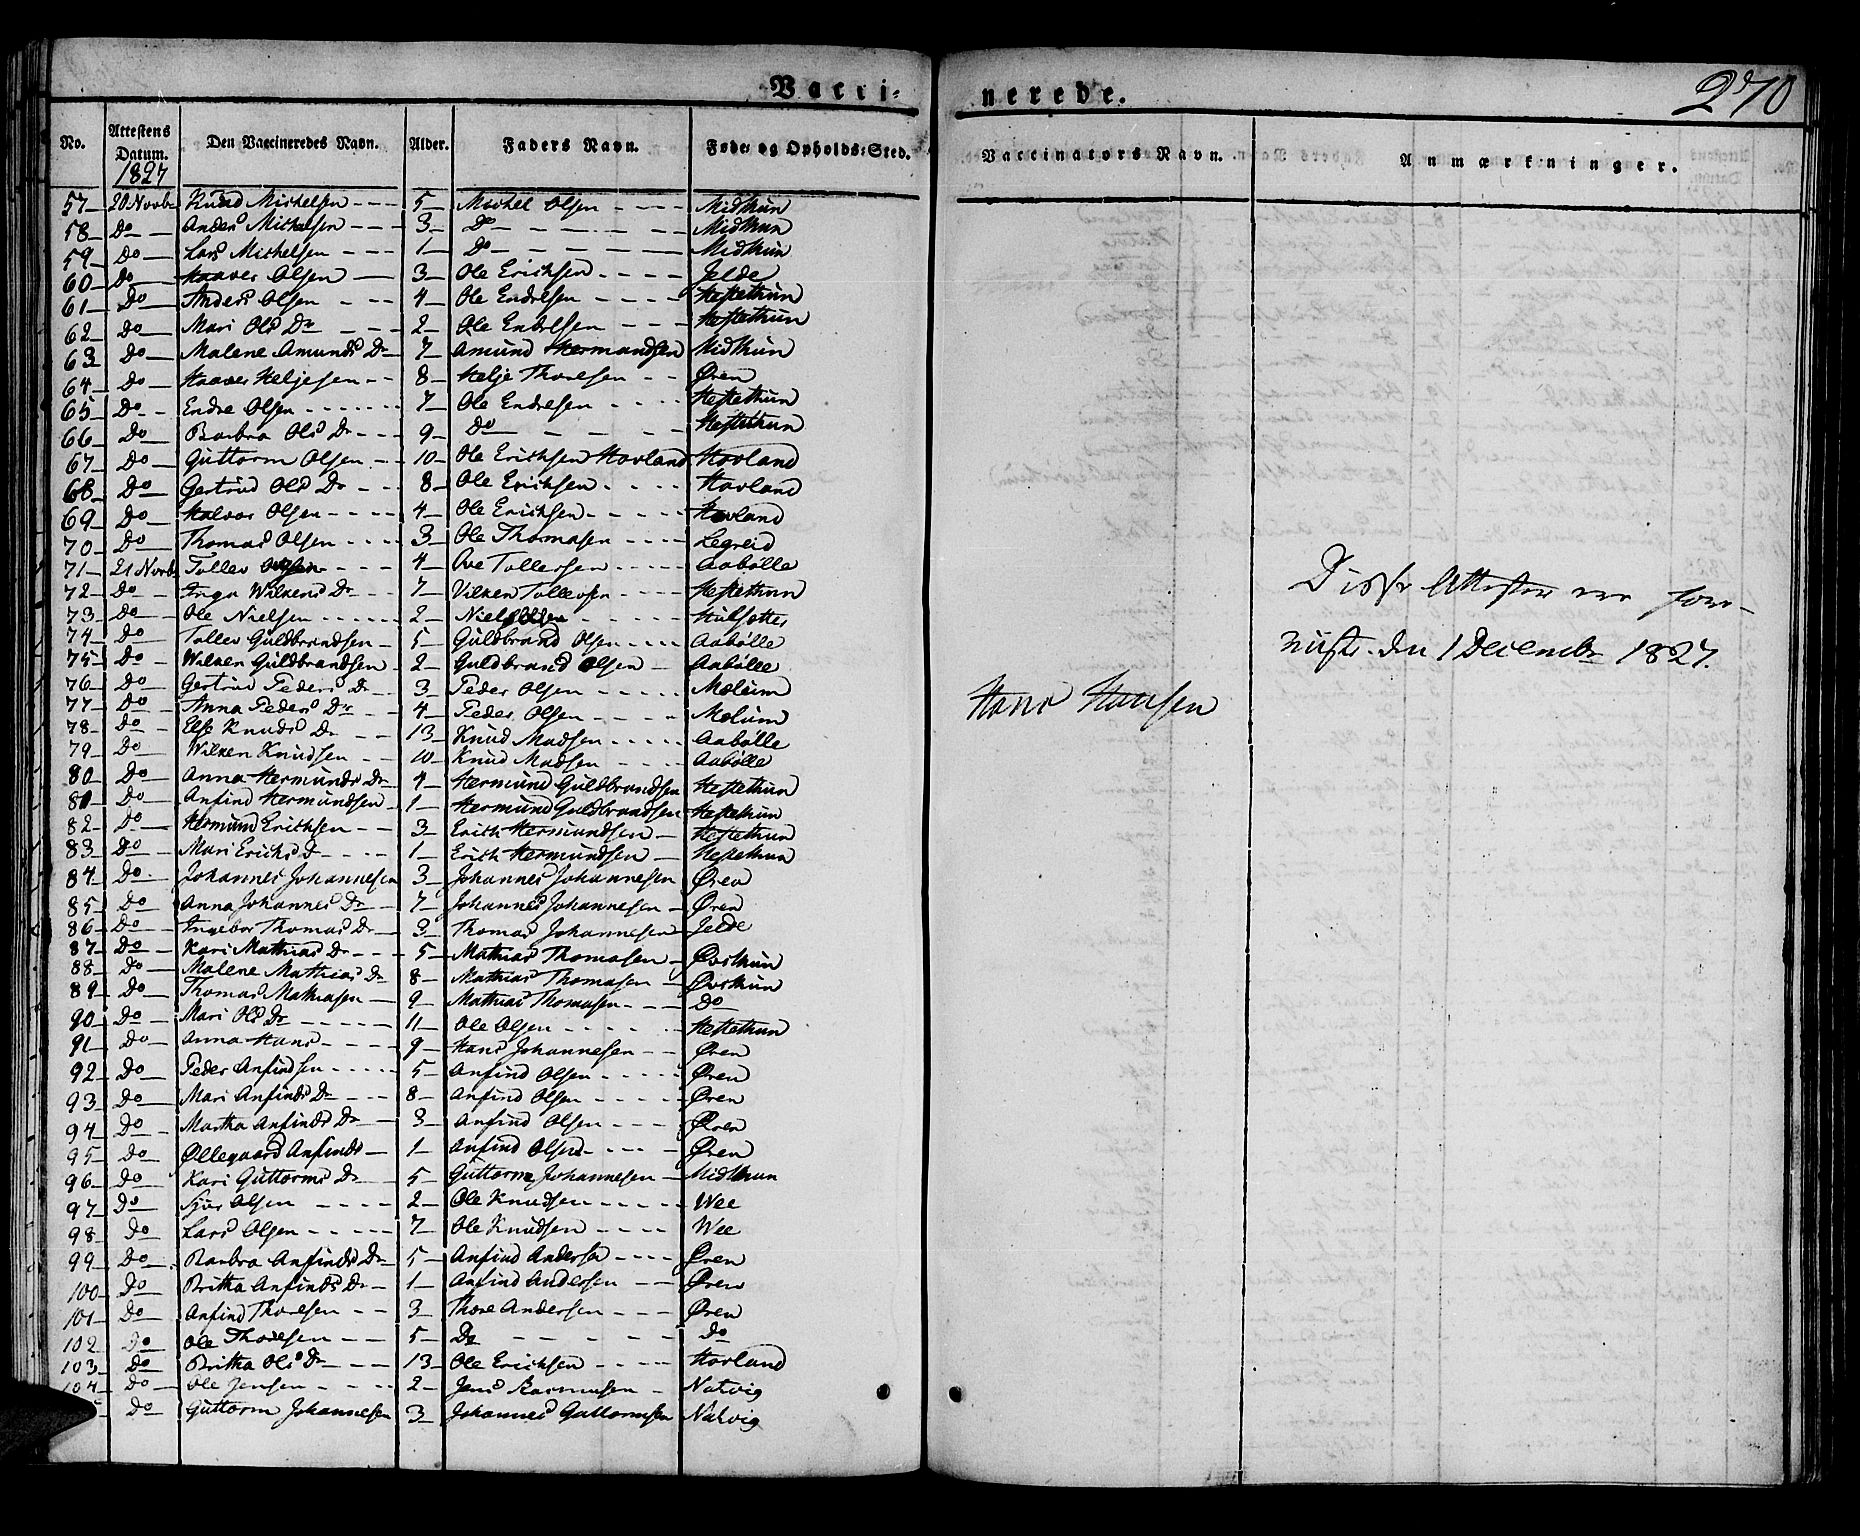 Vacci-
nerede.
270
No.
Attestens Datum.
1827
Den Vaccineredes Navn.
Alder.
Faders Navn.
Føde- og Opholds-Sted.
Vaccinators Navn.
Anmærkninger.
57 20 Novbr Knud Michelsen 5 Michel Olsen Midthun
58 Do Anders Michelsen 3 Do Midthun
59 Do Lars Michelsen 1 Do Midthun
60 Do Haaver Olsen 3 Ole Erichsen Jelde
61 Do Anders Olsen 4 Ole Endresen Hestethun
62 Do Mari Ols Dr 2 Ole Endresen Hestethun
63 Do Malene Amunds Dr 7 Amund Hermundsen Midthun
64 Do Haaver Heljesen 8 Helje Thoresen Øren
65 Do Endre Olsen 7 Ole Endresen Hestethun
66 Do Barbra Ols Dr 9 Do Hestethun
67 Do Guttorm Olsen 10 Ole Erichsen Hovland Hovland
68 Do Gertrud Ols Dr 8 Ole Erichsen Hovland
69 Do Halvor Olsen 4 Ole Erichsen Hovland
70 Do Thomas Olsen 3 Ole Thomasen Legreid
71 21 Novbr Tollev 4 Ove Tollefsen Aabølle
72 Do Inga Wilkens Dr 7 Vilken Tollevsen Hestethun
73 Do Ole Nielsen 2 Niels Olsen
74 Do Tollev Guldbrandsen 5 Guldbrand Olsen Aabølle
75 Do Wilken Guldbrandsen 2 Guldbrand Olsen Aabølle
76 Do Gertrud Peders Dr 3 Peder Olsen Molum
77 Do Anna Peders Dr 4 Peder Olsen Molum
78 Do Else Knuds Dr 13 Knud Madsen Aabølle
79 Do Wilken Knudsen 10 Knud Madsen Aabølle
80 Do Anna Hermunds Dr 4 Hermund Guldbrandsen Hestethun
81 Do Anfind Hermundsen 1 Hermund Guldbrandsen Hestethun
82 Do Hermund Erichsen 3 Erich Hermundsen Hestethun
83 Do Mari Erichs D 1 Erich Hermundsen Hestethun
84 Do Johannes Johannesen 3 Johannes Johannesen Øren
85 Do Anna Johannes Dr 7 Johannes Johannesen Øren
86 Do Ingebor Thomas Dr 3 Thomas Johannesen Jelde
87 Do Kari Mathias Dr 5 Mathias Thomasen Øvsthun
88 Do Malene Mathias Dr 8 Mathias Thomasen Øvsthun
89 Do Thomas Mathiasen 9 Mathias Thomasen Do
90 Do Mari Ols Dr 11 Ole Olsen Hestethun
91 Do Anna Hans 9 Hans Johannesen Øren
92 Do Peder Anfindsen 5 Anfind Olsen Øren
93 Do Mari Anfinds Dr 8 Anfind Olsen Øren
94 Do Martha Anfinds Dr 3 Anfind Olsen Øren
95 Do Øllegaard Anfinds 1 Anfind Olsen Øren
96 Do Kari Guttorms Dr 5 Guttorm Johannesen Midthun
97 Do Sjur Olsen 2 Ole Knudsen Wee
98 Do Lars Olsen 7 Ole Knudsen Wee
99 Do Barbra Anfinds Dr 5 Anfind Andersen Øren
100 Do Britha Anfinds Dr 1 Anfind Andersen Øren
101 Do Anfind Thoresen 3 Thore Andersen Øren
102 Do Ole Thoresen 5 Do Do
103 Do Britha Ols Dr 13 Ole Erichsen Hovland
104 Do Ole Jensen 2 Jens Rasmusen Natvig
5 Do Guttorm Johannesen 3 Johannes Guttormsen Natvig
Hans Hansen
Disse Attester ere fore-
viiste den 1 Decembr 1827.